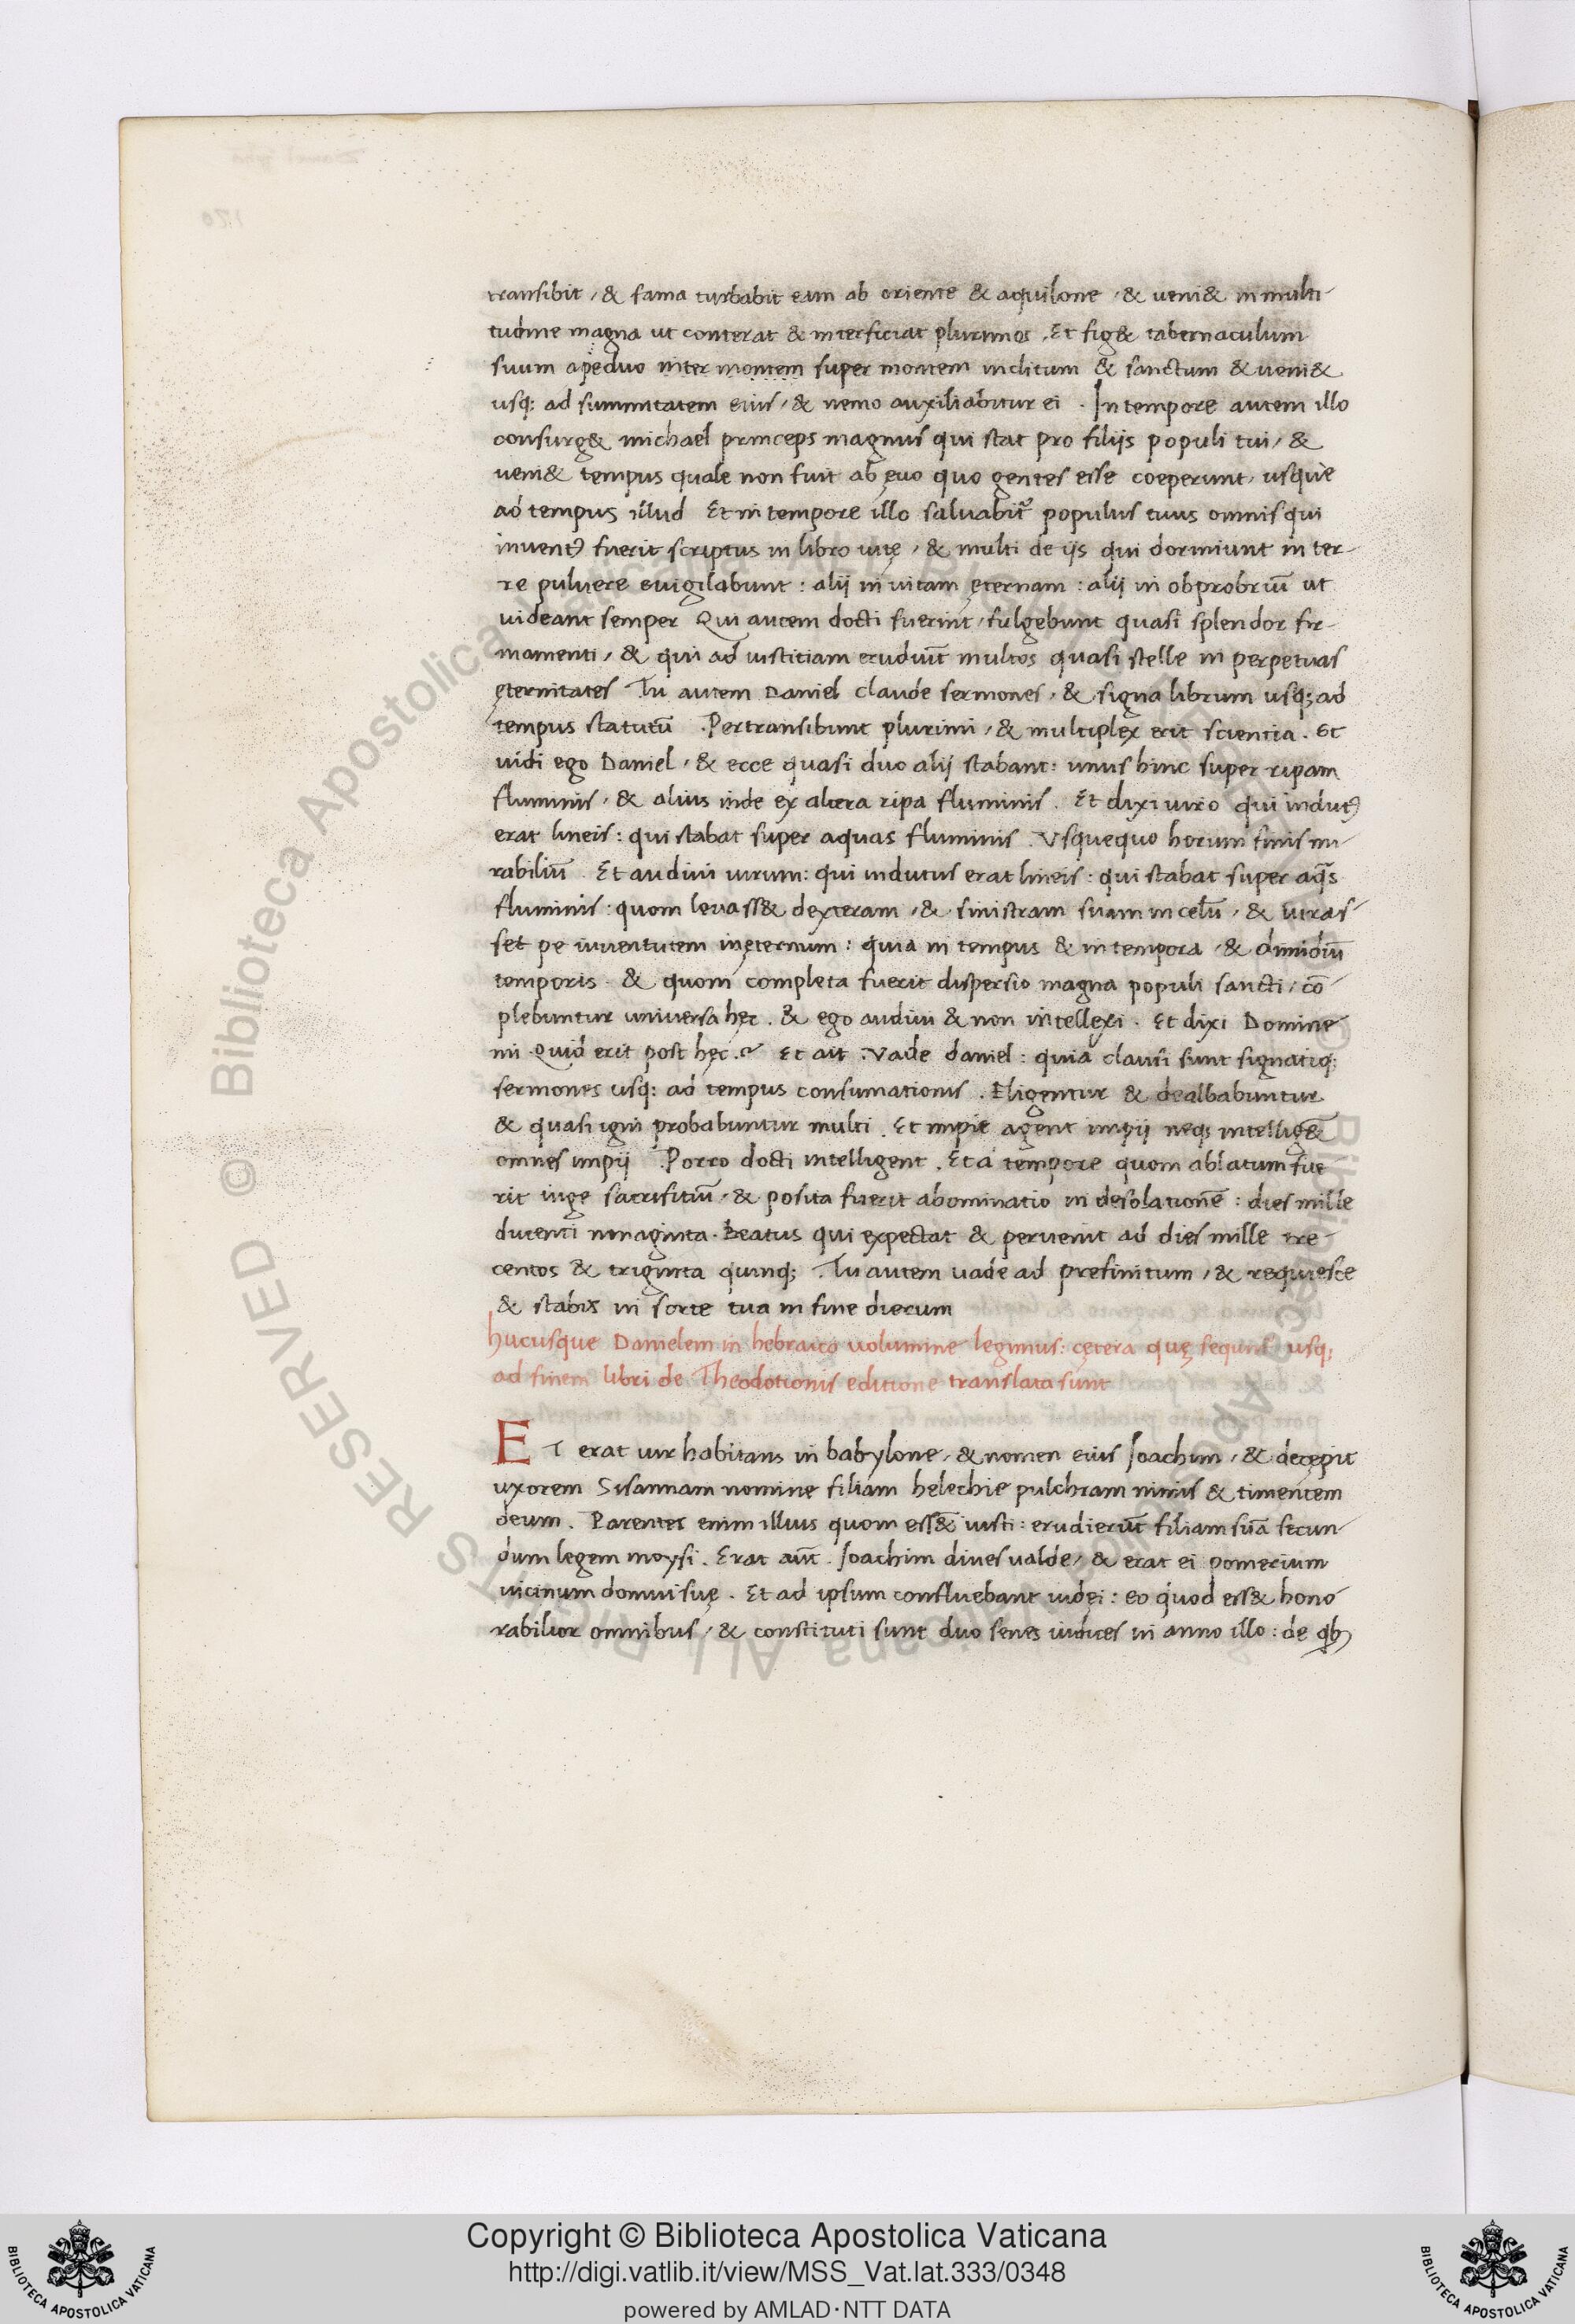 transibit, & fama turbabit eum ab oriente & aquilone, & ueni& in multi-
tudine magna ut conterat & interficiat plurimos. Et fig& tabernaculum
suum apeduo inter montem super montem inclitum & sanctum & ueni&
usq; ad summitatem eius, & nemo auxiliabitur ei. In tempore autem illo
consurg& michael princeps magnus qui stat pro filijs populi tui, &
ueni& tempus quale non fuit ab ęuo quo gentes esse coeperunt, usque
ad tempus illud Et in tempore illo saluabit᷑ populus tuus omnis qui
inuentꝰ fuerit scriptus in libro uitę, & multi de ijs qui dormiunt in ter-
re puluere euigilabunt: alij in uitam ęternam: alij in obprobriū ut
uideant semper Qui autem docti fuerint, fulgebunt quasi splendor fir-
mamenti, & qui ad iustitiam erudiūt multos quasi stelle in perpetuas
ęternitates Tu autem Daniel claude sermones, & signa librum usq; ad
tempus statutū. Pertransibunt plurimi, & multiplex erit scientia. Et
uidi ego Daniel, & ecce quasi duo alij stabant: unus hinc super ripam
fluminis, & alius inde ex altera ripa fluminis. Et dixi uiro qui indutꝰ
erat lineis: qui stabat super aquas fluminis. Vsquequo horum finis mi-
rabiliū. Et audiui uirum: qui indutus erat lineis: qui stabat super aq̃s
fluminis: quom leuass& dexteram, & sinistram suam in celū, & iuras-
set pe iuuentutem inęternum: quia in tempus & in tempora, & dimidiū
temporis & quom completa fuerit dispersio magna populi sancti, cō-
plebuntur uniuersa hęc. & ego audiui & non intellexi. Et dixi Domine
mi Quid erit post hęc.? Et ait. Vade daniel: quia clausi sunt signatiq;
sermones usq; ad tempus consumationis. Eligentur & dealbabuntur
& quasi igni probabuntur multi. Et impie agent impij neq; intellig&̄
omnes impij. Porro docti intelligent. Et a tempore quom ablatum fue
rit iuge sacrifitiū, & posita fuerit abominatio in desolationē: dies mille
ducenti nonaginta. Beatus qui expectat & peruenit ad dies mille tre-
centos & triginta quinq;. Tu autem uade ad prefinitum, & requiesce
& stabis in sorte tua in fine dierum
hucusque Danielem in hebraico uolumine legimus: cętera quę sequnt᷑ usq;
ad finem libri de Theodotionis editione translata sunt
ET erat uir habitans in babylone, & nomen eius Joachim, & decępit
uxorem Susannam nomine filiam helechie pulchram nimis & timentem
deum. Parentes enim illius quom ess&̄ iusti: erudierūt filiam suā secun-
dum legem moysi. Erat aūt. Joachim diues ualde, & erat ei pomerium
uicinum domui suę. Et ad ipsum confluebant iudęi: eo quod ess& hono
rabilior omnibus, & constituti sunt duo senes iudices in anno illo: de qbꝰ
© Biblioteca Apostolica Vaticana ALL RIGHTS RESERVED
Copyright © Biblioteca Apostolica Vaticana
http://digi.vatlib.it/view/MSS_Vat.lat.333/0348
powered by AMLAD·NTT DATA
BIBLIOTECA APOSTOLICA VATICANA
BIBLIOTECA APOSTOLICA VATICANA